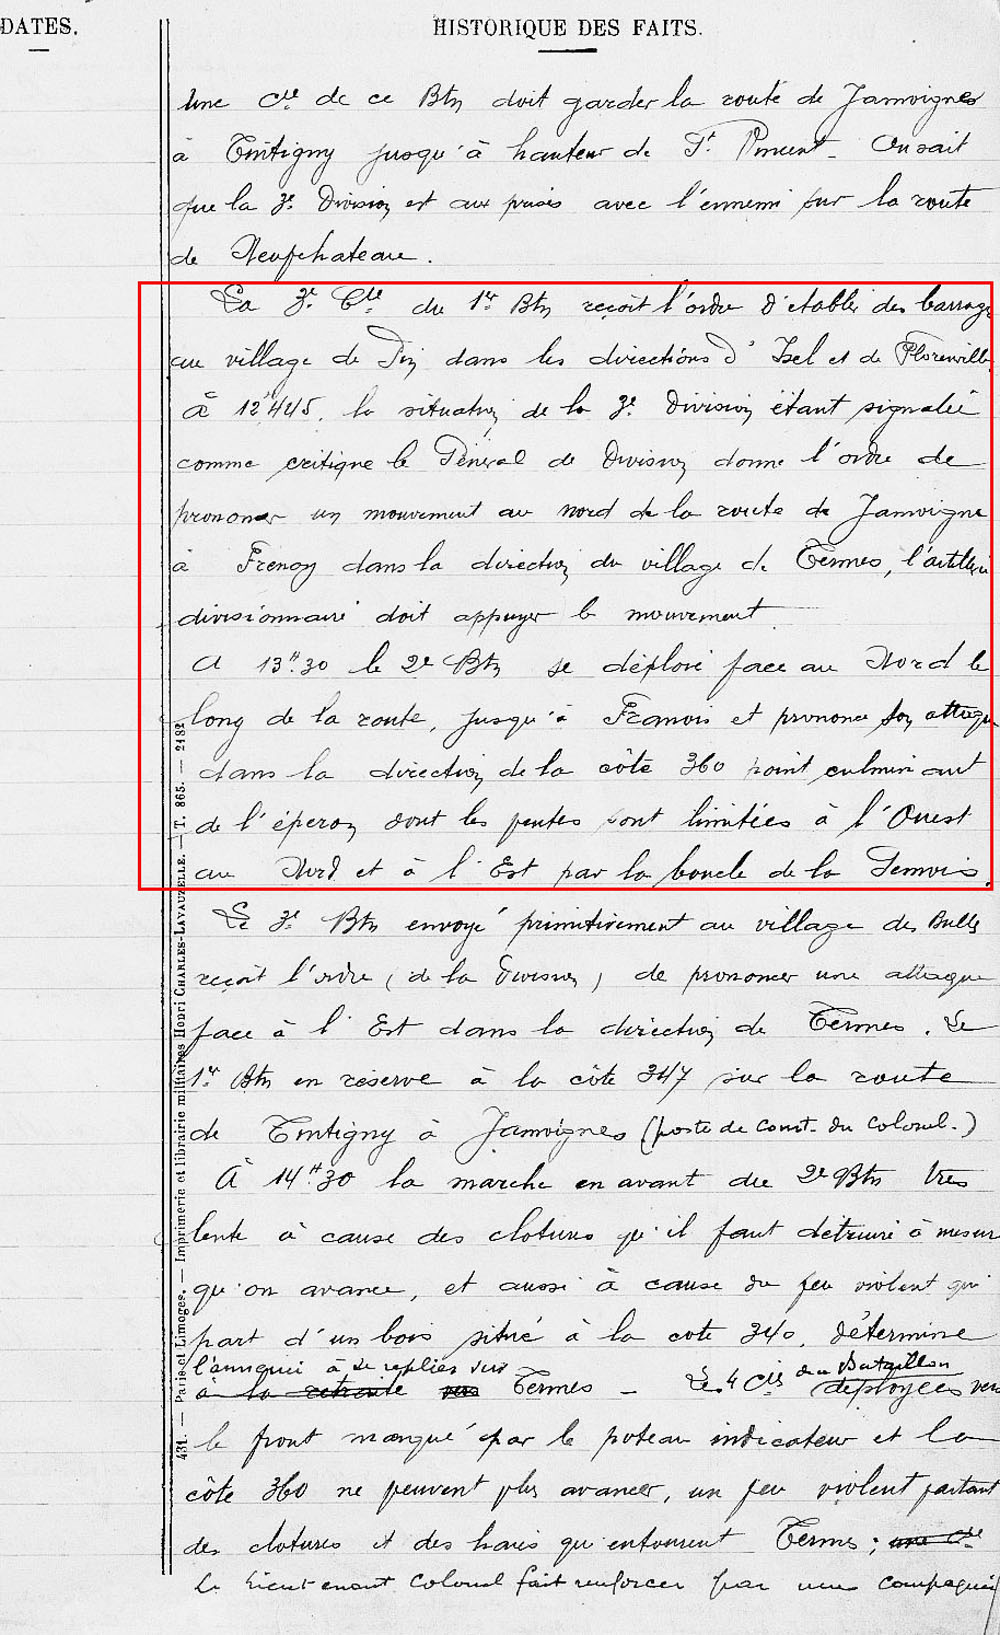 DATES.
HISTORIQUE DES FAITS.
Une Cie de ce Btn doit garder la route de Jamoignes
à Tintigny jusqu'à hauteur de St Vincent. On sait
que la 3e Division est aux prises avec l'ennemi sur la route
de Neufchateau.
La 3e Cie du 1er Btn reçoit l'ordre d'établir des barrages
au village de Pin dans les directions d'Izel et de Florenville
À 12h45, la situation de la 3e Division étant signalée
comme critique le Général de Division donne l'ordre de
prononcer un mouvement au nord de la route de Jamoigne
à Frenoy dans la direction du village de Termes, l'artillerie
divisionnaire doit appuyer le mouvement
A 13h30 le 2e Btn se déploie face au Nord le
long de la route, jusqu'à Franois et prononce son attaque
dans la direction de la côte 360 point culminant
de l'éperon dont les pentes sont limitées à l'Ouest
au Nord et à l'Est par la boucle de la Semois.
Le 3e Btn envoyé primitivement au village des Bulles
reçoit l'ordre (de la Division) de prononcer une attaque
face à l'Est dans la direction de Termes. Le
1er Btn en réserve à la côte 347 sur la route
de Tintigny à Jamoignes (poste de Comt. du Colonel.)
À 14h30 la marche en avant du 2e Btn très
lente à cause des clotures qu'il faut détruire à mesure
qu'on avance, et aussi à cause du feu violent qui
part d'un bois situé à la cote 340, détermine
l'ennemi à se replier vers du Bataillon
à la retraite vers Termes - Les 4 Cies déployées vers
le front marqué par le poteau indicateur et la
côte 360 ne peuvent plus avancer, un feu violent partant
des clotures et des haies qui entourent Termes ; une Cie
Le Lieutenant Colonel fait renforcer par une compagnie
431. — Paris et Limoges. — Imprimerie et librairie militaires Henri CHARLES-LAVAUZELLE. — T. 865. — 2182